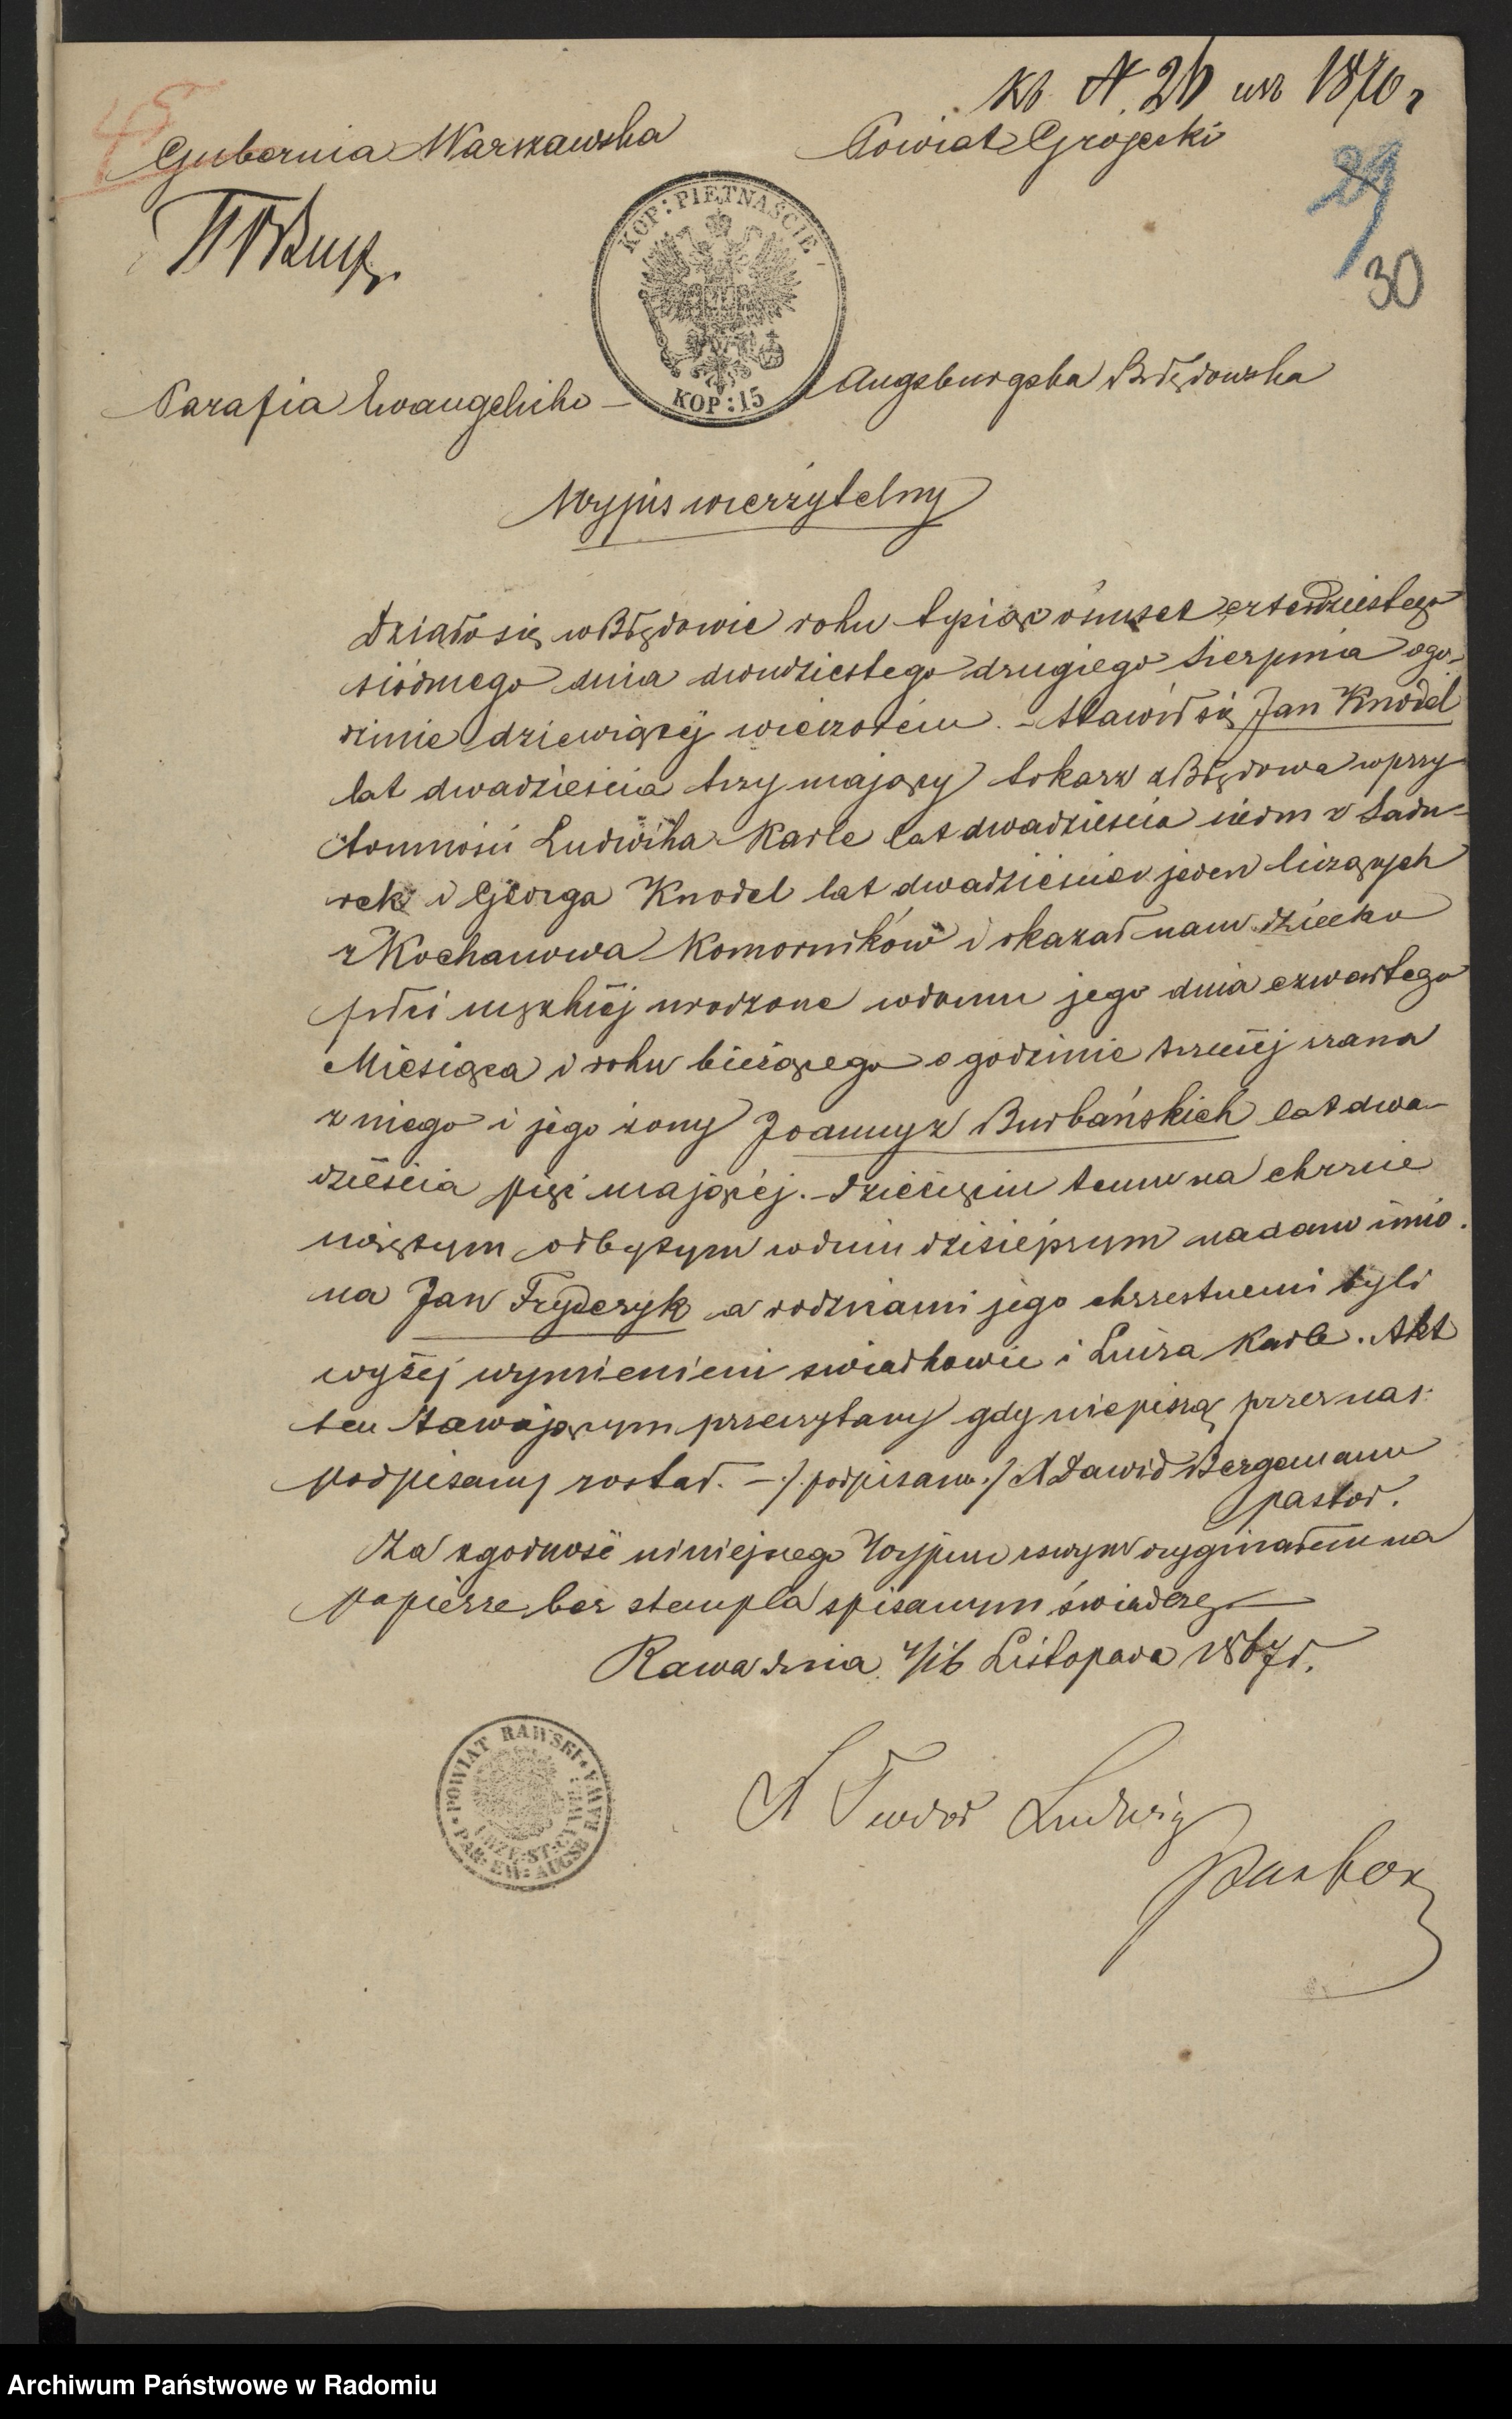 45
kt N. 26 ur 1870 r
Gubernia Warszawska Powiat Grójecki
29
30
KOP: PIĘTNAŚCIE
KOP: 15
Parafia Ewangelicko - Augsburgska Błędowska
Wypis wierzytelny
Działo się w Błędowie roku tysiąc ośmset czterdziestego
siódmego dnia dwudziestego drugiego Sierpnia o go-
dzinie dziewiątéj wieczorem. - Stawił się Jan Knodel
lat dwadzieścia trzy mający tokarz z Błędowa w przy
tomności Ludwika Karle lat dwadzieścia siedm z Sadu-
rek i Georga Knodel lat dwadzieścia jeden liczących
z Kochanowa Komorników i okazał nam dziecko
płci męzkiéj urodzone w domu jego dnia czwartego
Miesiąca i roku bieżącego o godzinie trzeciéj z rana
z niego i jego żony Joanny z Burbańskich lat dwa-
dzieścia pięć mającéj. - Dziecięciu temu na chrzcie
świętym odbytym w dniu dzisiejszym nadano imio-
na Jan Fryderyk a rodzicami jego chrzestnemi byli
wyżej wymienieni świadkowie i Luiza Karle. Akt
ten stawającym przeczytany gdy niepiszą przez nas
podpisany został. - /. podpisano ./ X Dawid Bergemann
pastor.
Za zgodność niniejszego Wypisu z swym oryginałem na
papierze bez stempla spisanym świadczę
Rawa dnia 4/16 Listopada 1867 r.
POWIAT RAWSKI
PAR: EW: AUGSB RAWA
URZĘ: ST: CYWIL:
X Teodor Ludwig
Pastor
Archiwum Państwowe w Radomiu